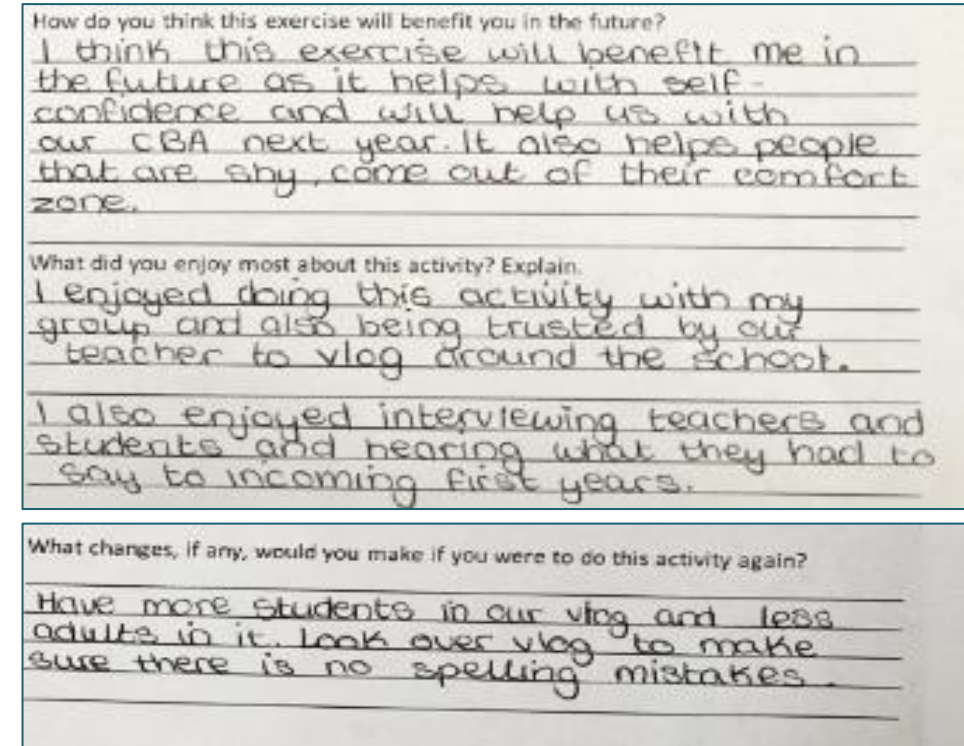 How do you think this exercise will benefit you in the future?
I think this exercise will benefit me in
the future as it helps with self-
confidence and will help us with
our CBA next year. It also helps people
that are shy, come out of their comfort
zone.
What did you enjoy most about this activity? Explain.
I enjoyed doing this activity with my
group and also being trusted by our
teacher to vlog around the school.
I also enjoyed interviewing teachers and
students and hearing what they had to
say to incoming first years.
What changes, if any, would you make if you were to do this activity again?
Have more students in our vlog and less
adults in it. Look over vlog to make
sure there is no spelling mistakes.